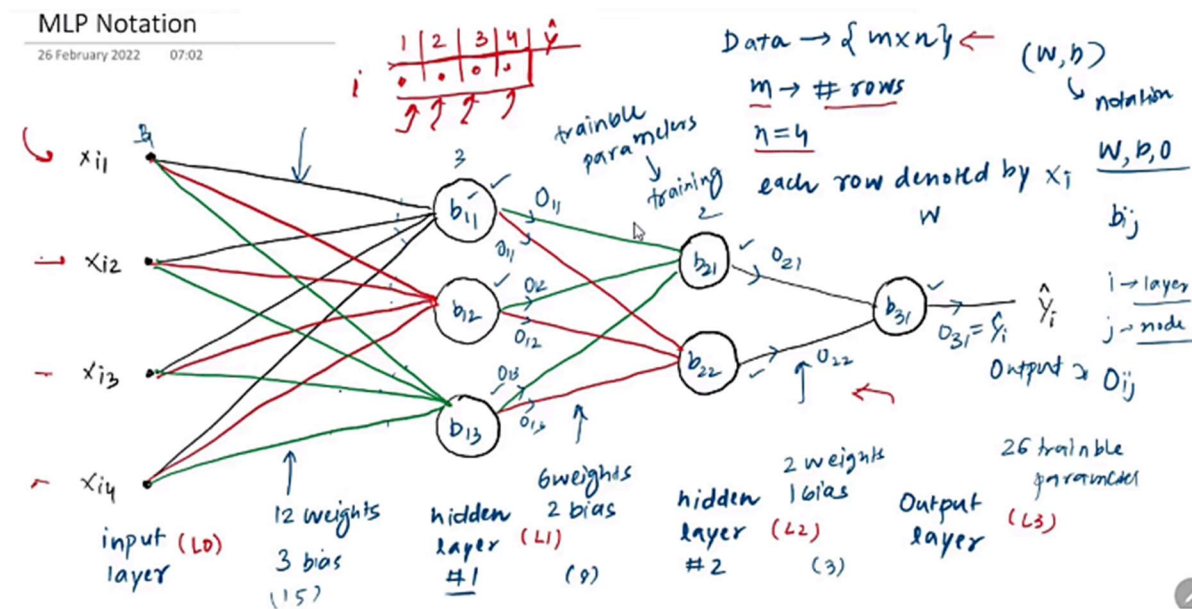 MLP Notation
26 February 2022 07:02
1 | 2 | 3 | 4 | ŷ
i
Data → { m×n } ←
m → # rows
n=4
each row denoted by xi
W
(W,b)
notation
W, b, O
bij
i → layer
j → node
Output → Oij
trainble
parameters
training
xi1
xi2
xi3
xi4
3
b11
b12
b13
O11
O11
O12
O12
O13
O13
2
b21
b22
O21
O22
b31
O31 = ŷi
ŷi
input (L0)
layer
12 weights
3 bias
(15)
hidden
layer (L1)
#1
6 weights
2 bias
(8)
hidden
layer (L2)
#2
2 weights
1 bias
(3)
Output
layer (L3)
26 trainble
parameter